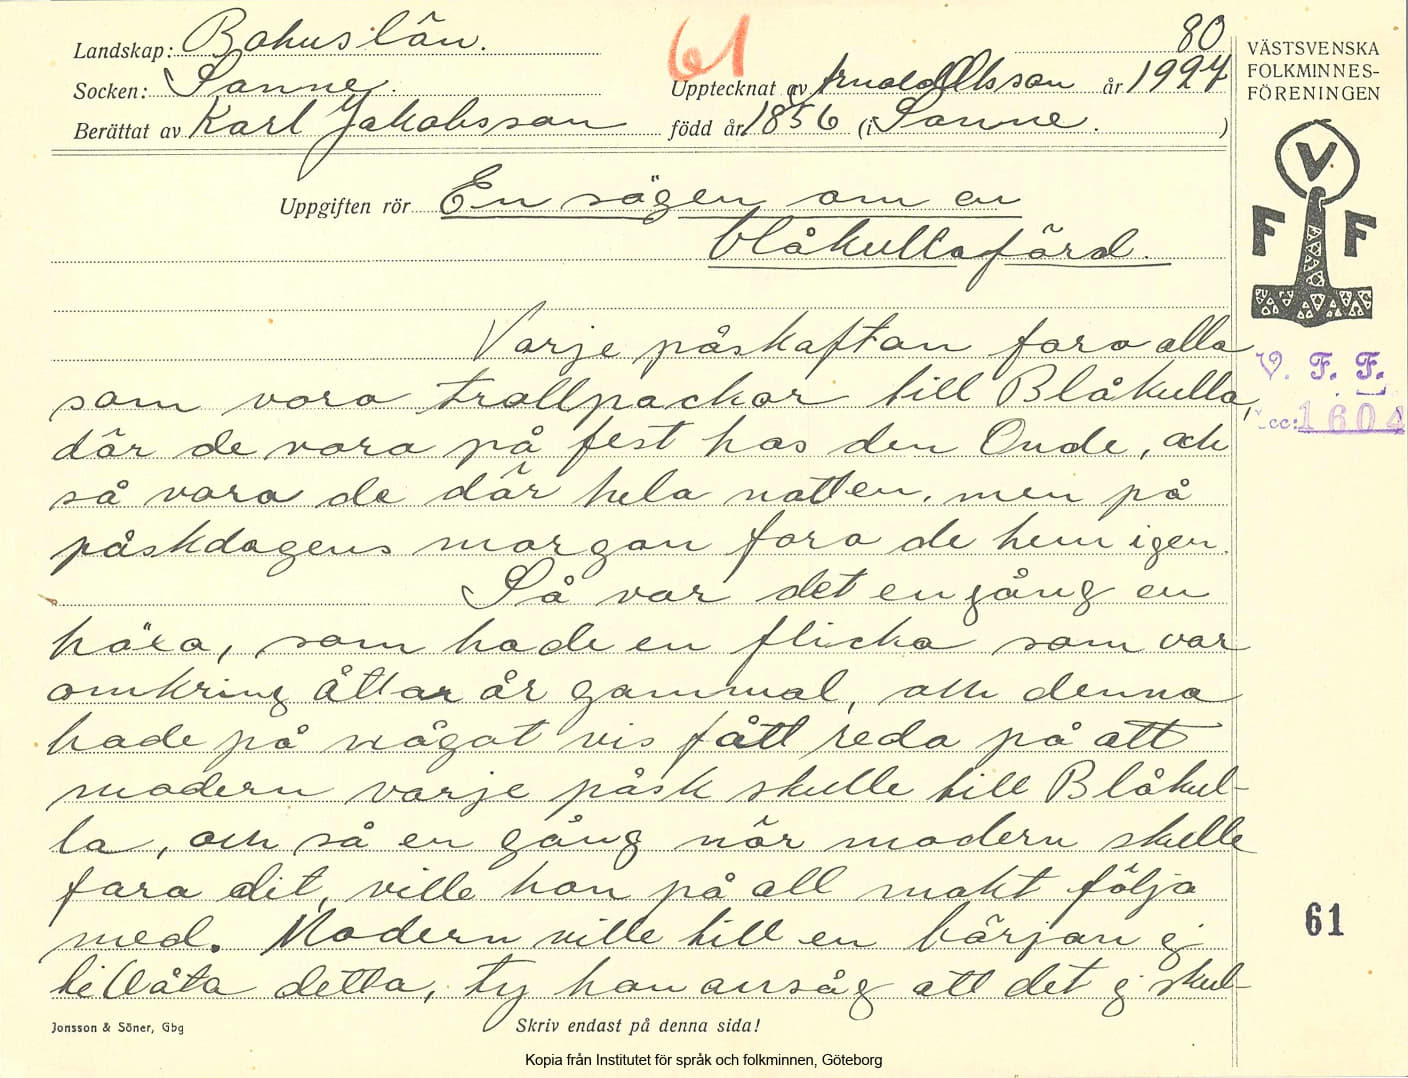 Landskap: Bohuslän. 61 80
Socken: Sanne. Upptecknat av Arnold Olsson år 1927
Berättat av Karl Jakobsson född år 1856 (i Sanne. )
VÄSTSVENSKA
FOLKMINNES-
FÖRENINGEN
V
F F
Uppgiften rör En sägen om en
blåkullafärd.
Varje påskafton fara alla
som vora trollpackor till Blåkulla,
där de vora på fest hos den Onde, och
så vara de där hela natten, men på
påskdagens morgon fara de hem igen.
Så var det en gång en
häxa, som hade en flicka som var
omkring åtta år gammal, och denna
hade på något vis fått reda på att
modern varje påsk skulle till Blåkul-
la, och så en gång när modern skulle
fara dit, ville hon på all makt följa
med. Modern ville till en början ej
tillåta detta, ty hon ansåg att det ej skul-
V. F. F.
Acc: 1604
61
Jonsson & Söner, Gbg
Skriv endast på denna sida!
Kopia från Institutet för språk och folkminnen, Göteborg